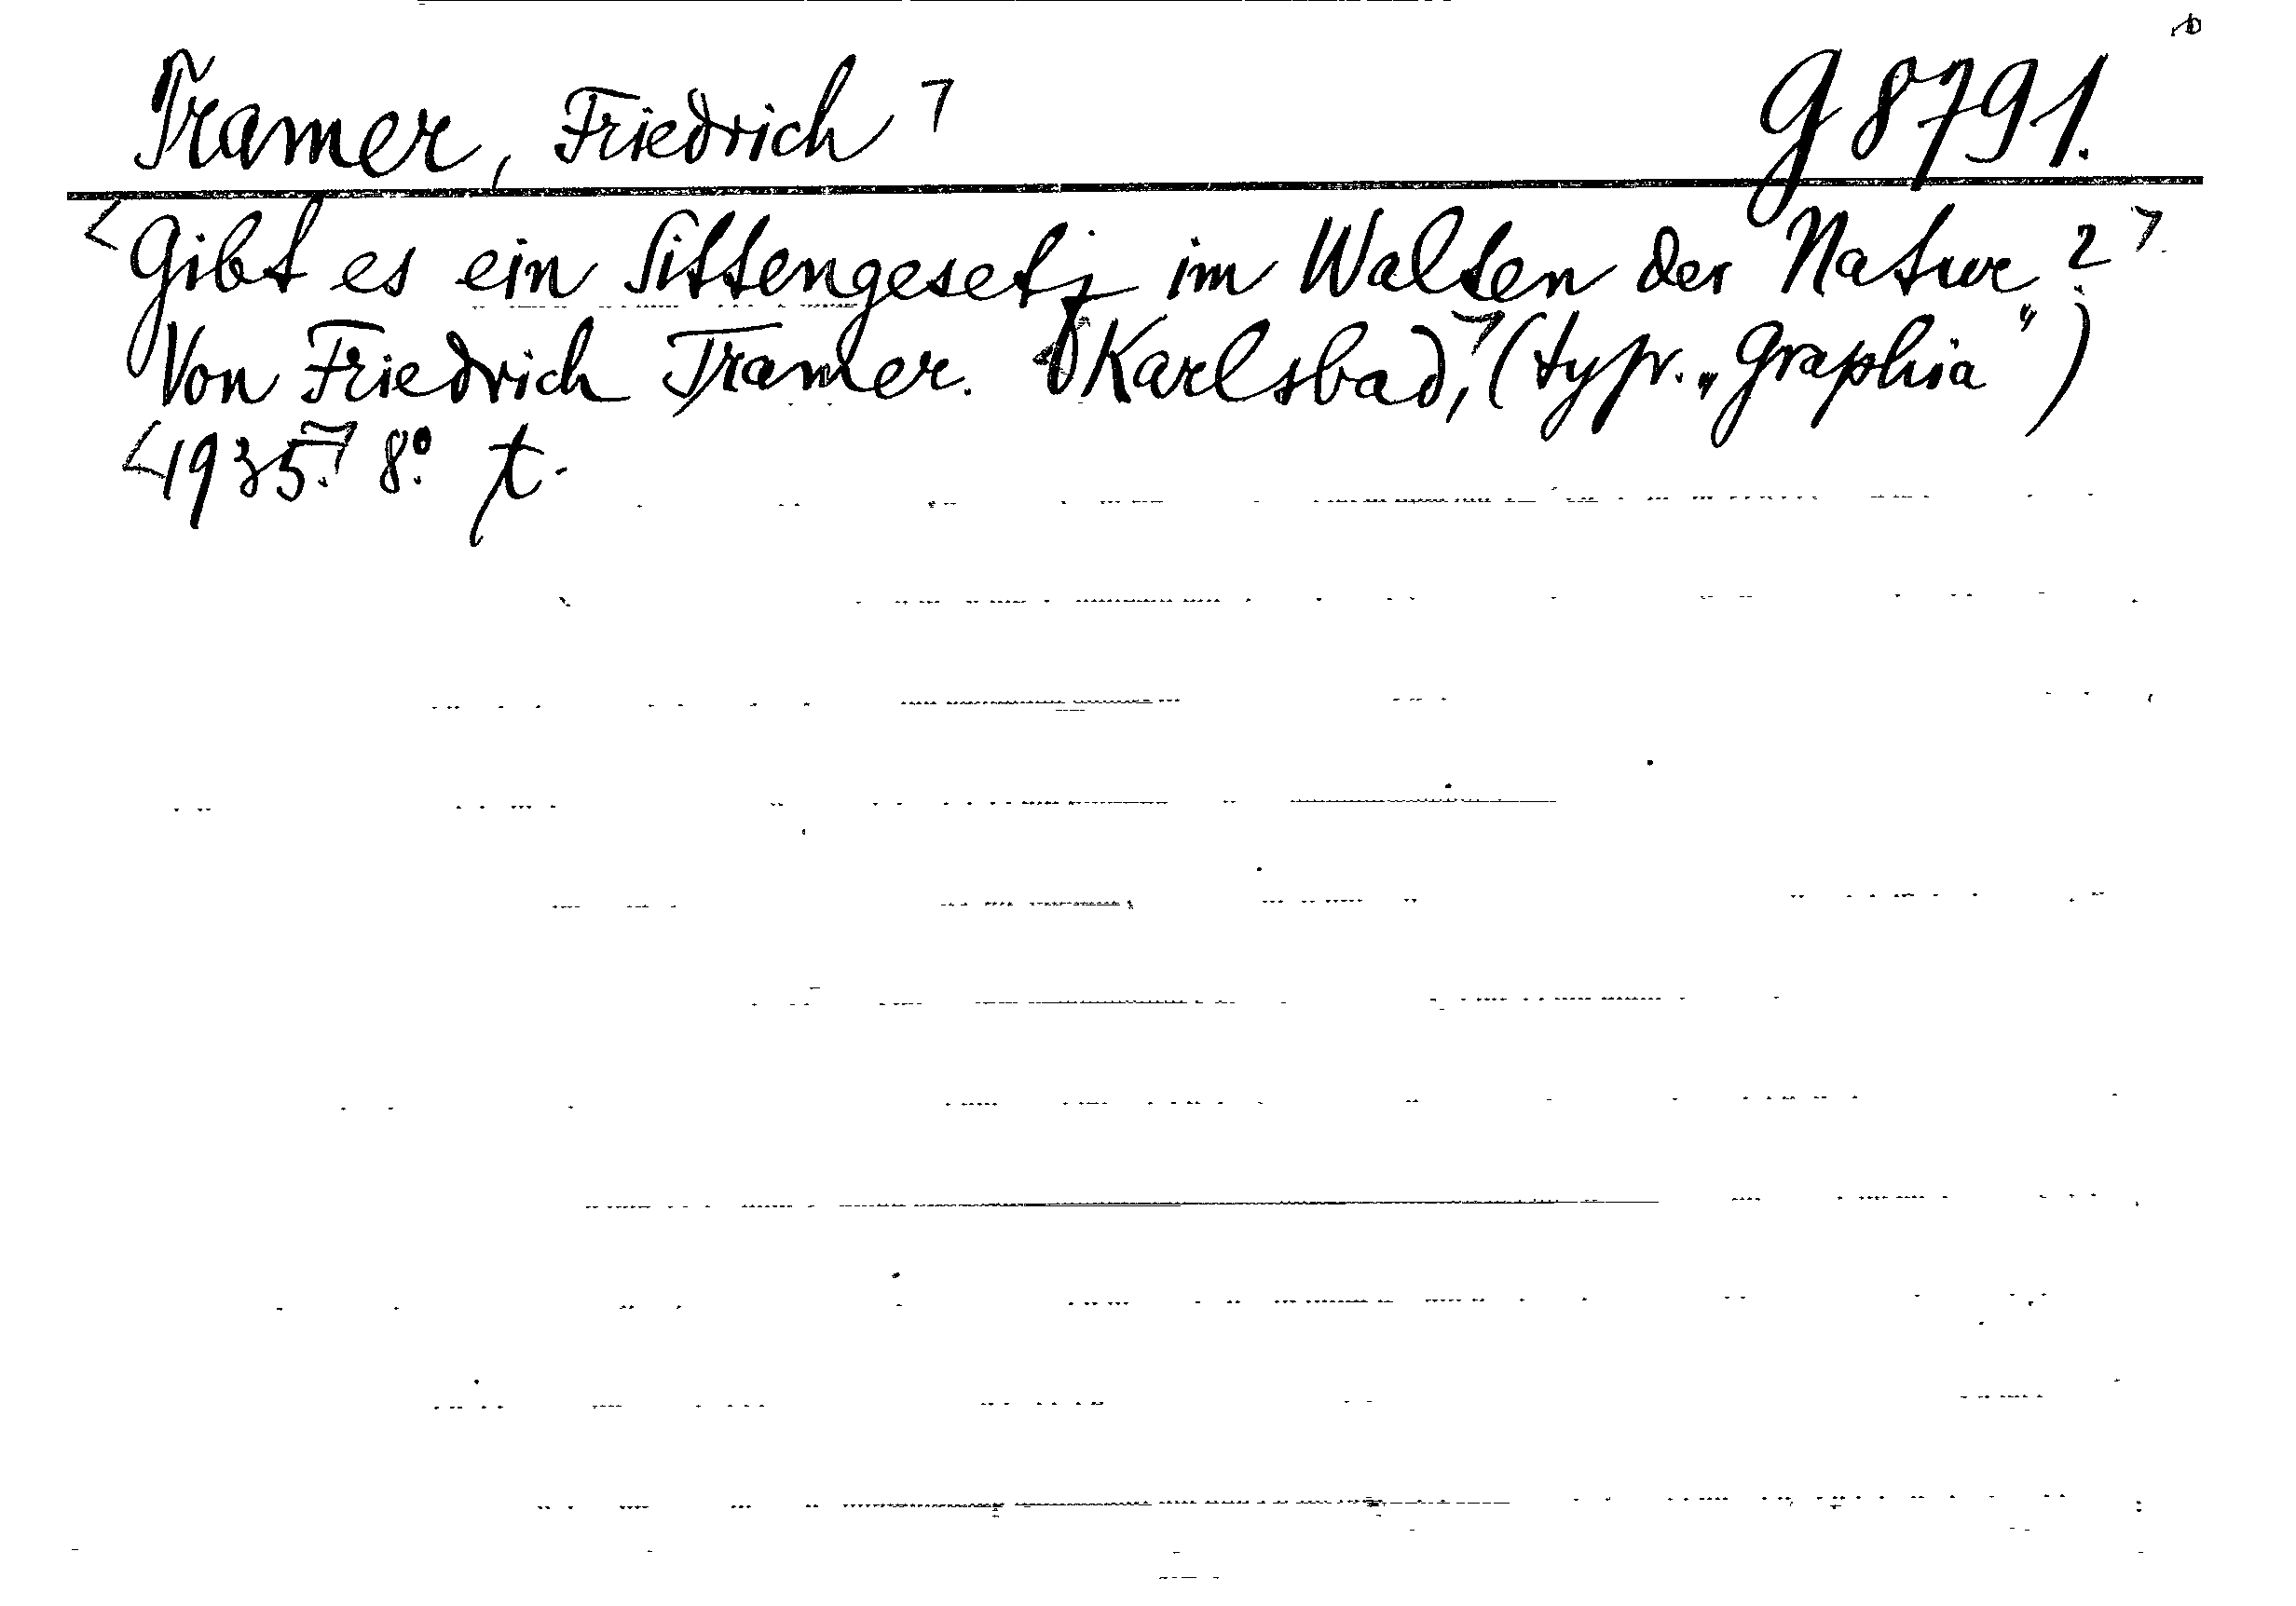 Tramer, Friedrich G 8791.
Gibt es ein Sittengesetz im Walten der Natur?
Von Friedrich Tramer. Karlsbad, (typr. „Graphia")
1935. 8° t.